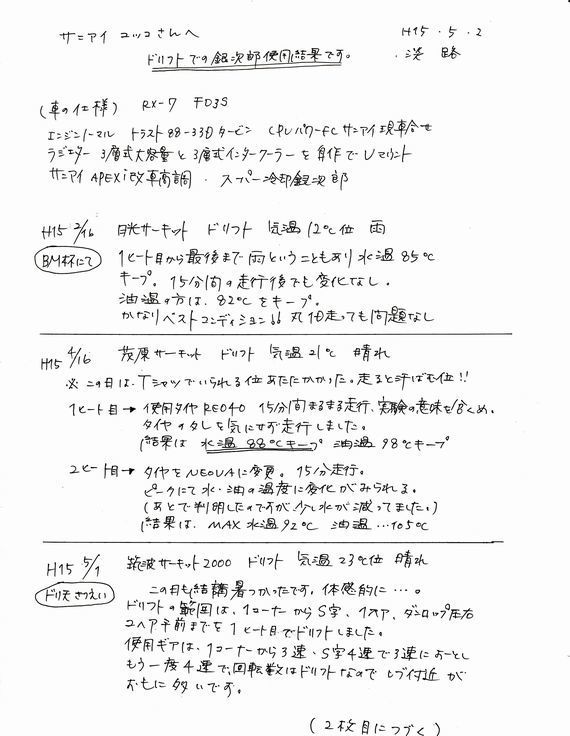 サニアイ ユッコさんへ
H15・5・2
・淡路
ドリフトでの銀次郎使用結果です。
(車の仕様) RX-7 FD3S
エンジンノーマル トラスト88-33Dタービン CPUパワーFC サニアイ現車合せ
ラジエター 3層式大容量と3層式インタークーラーを自作でVマウント
サニアイ APEXi改車高調 ・スーパー冷却銀次郎
H15 2/16 日光サーキット ドリフト 気温12℃位 雨
BM杯にて
1ヒート目から最後まで雨ということもあり水温85℃
キープ。15分間の走行後でも変化なし。
油温の方は、82℃をキープ。
かなりベストコンディション 丸1日走っても問題なし
H15 4/16 茂原サーキット ドリフト 気温21℃ 晴れ
※この日は、Tシャツでいられる位あたたかかった。走ると汗ばむ位!!
1ヒート目→使用タイヤRE040 15分間まるまる走行、実験の意味を含くめ、
タイヤのタレを気にせず走行しました。
結果は 水温 88℃キープ 油温 98℃キープ
2ヒート目→タイヤをNEOVAに変更。15分走行。
ピークにて水・油の温度に変化がみられる。
(あとで判明したのですが少し水が減ってました。)
結果は、MAX 水温92℃ 油温…105℃
H15 5/1 筑波サーキット2000 ドリフト 気温23℃位 晴れ
ドリ天さつえい
この日も結構暑つかったです。体感的に…。
ドリフトの範囲は、1コーナーからS字、1ヘア、ダンロップ左右
2ヘア手前までを1ヒート目でドリフトしました。
使用ギアは、1コーナーから3速、S字4速で3速におーとし
もう一度4速で、回転数はドリフトなのでレブ付近が
おもに多いです。
(2枚目につづく)